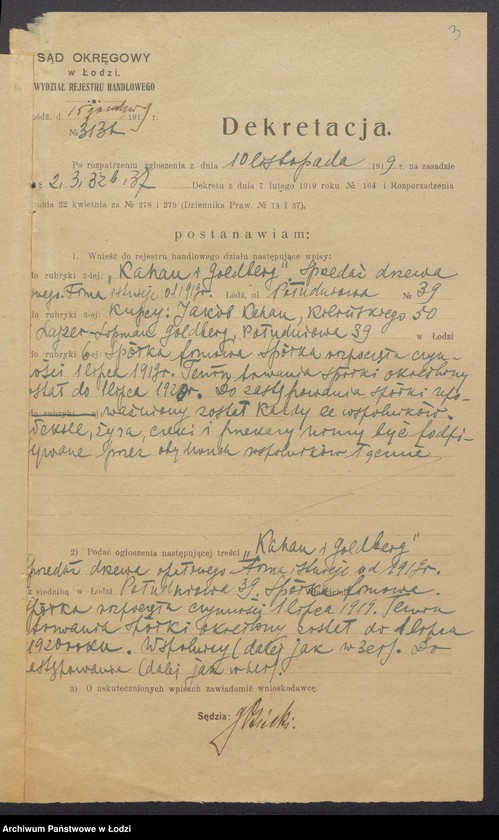 3
SĄD OKRĘGOWY
w Łodzi.
WYDZIAŁ REJESTRU HANDLOWEGO
Łódź, d. 15 grudnia 1919 r.
№ 3131
Dekretacja.
Po rozpatrzeniu zgłoszenia z dnia 10 listopada 1919 r. na zasadzie
§ 2, 3, 32b, 37 Dekretu z dnia 7 lutego 1919 roku № 164 i Rozporządzenia
dnia 22 kwietnia za № 278 i 279 (Dziennika Praw. № 14 i 37),
postanawiam:
1. Wnieść do rejestru handlowego działu następujące wpisy:
do rubryki 2-iej: „Kahan i Goldberg”. Sprzedaż drzewa
owego. Firma istnieje od 1919r. Łódź, ul. Południowa № 39
do rubryki 3-ej: Kupcy: Jakób Kahan, 50
Lajzer Goldberg, Południowa 39 w Łodzi
do rubryki 6ej Spółka firmowa Spółka rozpoczęła czyn-
ności 1 lipca 1919r. Termin trwania spółki określony
został do 1 lipca 1920r. Do zastępowania spółki upo-
do rubryki ej ważniony został każdy ze wspólników.
Weksle, żyra, czeki i przekazy winny być podpi-
sywane przez obydwuch wspólników łącznie
2) Podać ogłoszenia następującej treści „Kahan i Goldberg”
Sprzedaż drzewa opałowego. Firma istnieje od 1919r.
z siedzibą w Łodzi Południowa 39 Spółka firmowa.
Spółka rozpoczęła czynności 1 lipca 1919. Termin
trwania spółki określony został do 1 lipca
1920 roku. Wspólnicy (dalej jak w 3ej). Do
zastępowania (dalej jak w 6ej).
3) O uskutecznionych wpisach zawiadomić wnioskodawcę:
Sędzia:
Archiwum Państwowe w Łodzi